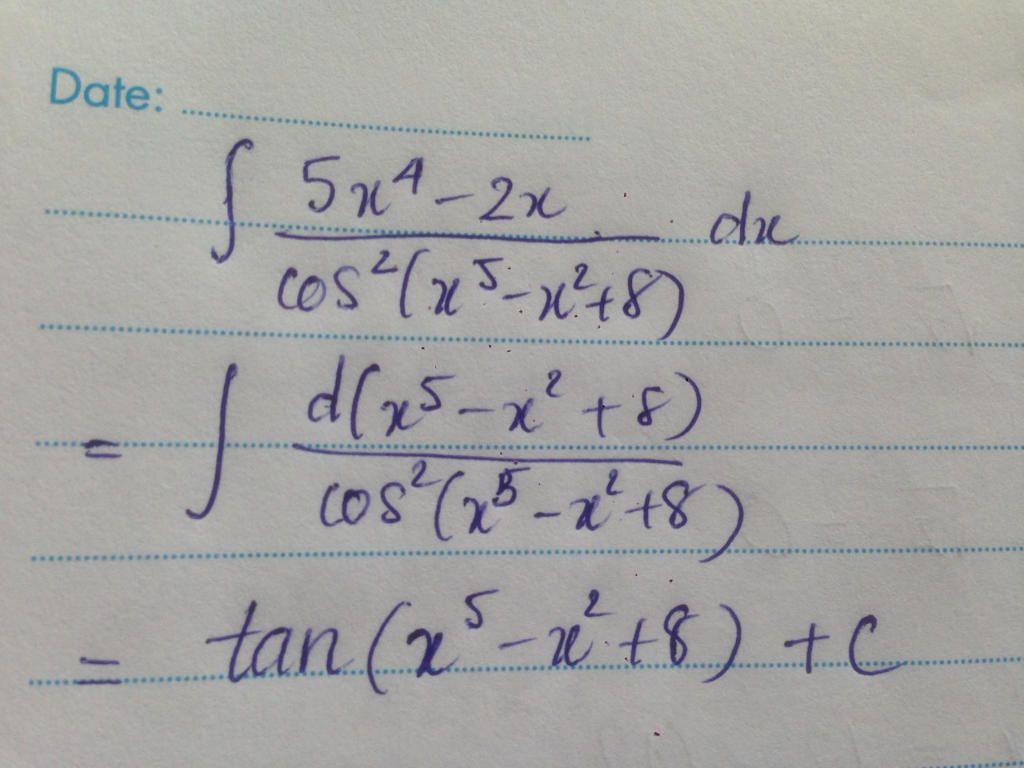 Date:
∫ (5x⁴ - 2x) / (cos²(x⁵ - x² + 8)) dx
= ∫ d(x⁵ - x² + 8) / (cos²(x⁵ - x² + 8))
= tan(x⁵ - x² + 8) + C